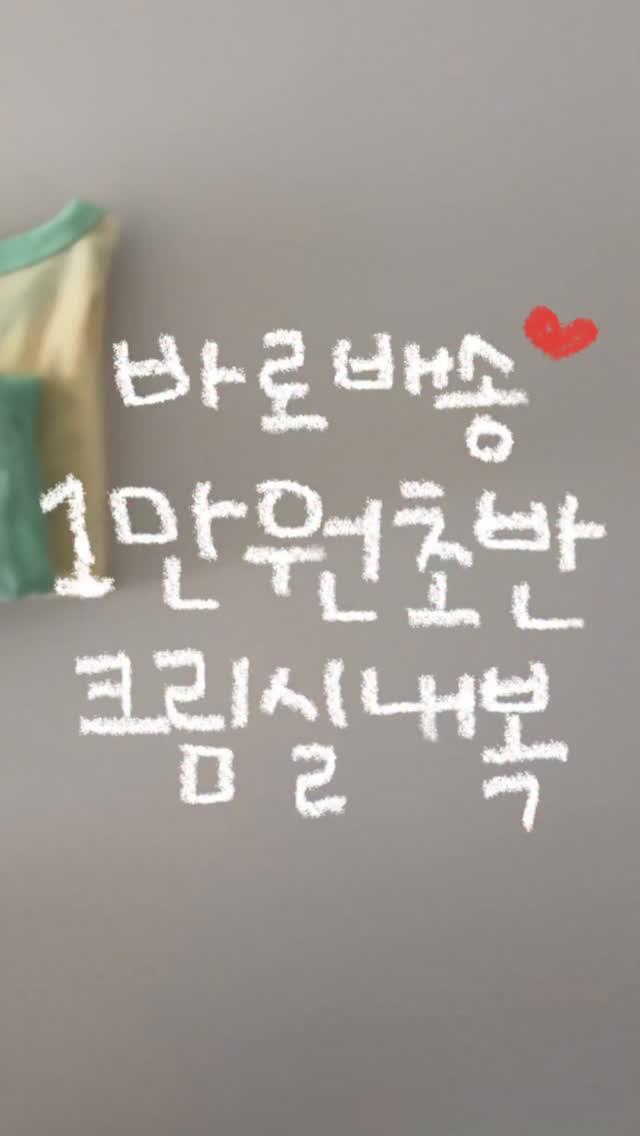 바로배송
1만원초반
크림실내복